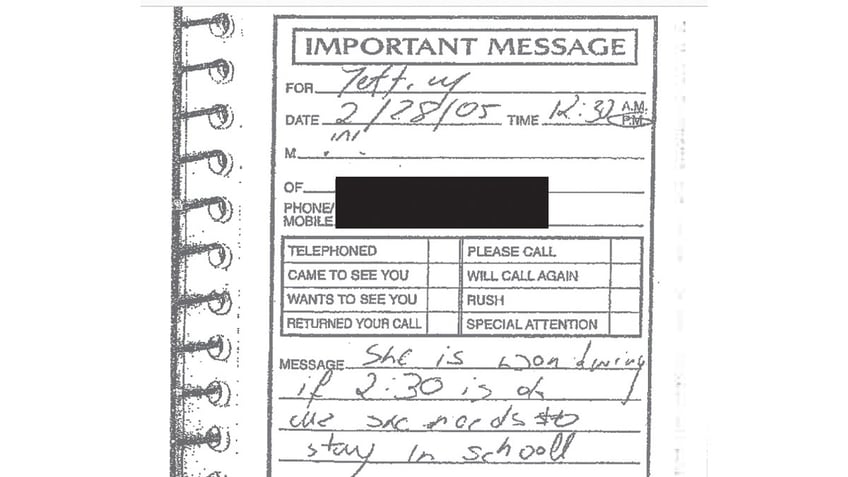 IMPORTANT MESSAGE
FOR
DATE 2/28/05 TIME 12:30 A.M.
P.M.
M
OF
PHONE/
MOBILE
TELEPHONED PLEASE CALL
CAME TO SEE YOU WILL CALL AGAIN
WANTS TO SEE YOU RUSH
RETURNED YOUR CALL SPECIAL ATTENTION
MESSAGE She is wondwring
if 2:30 is ok
she needs to
stay in schooll